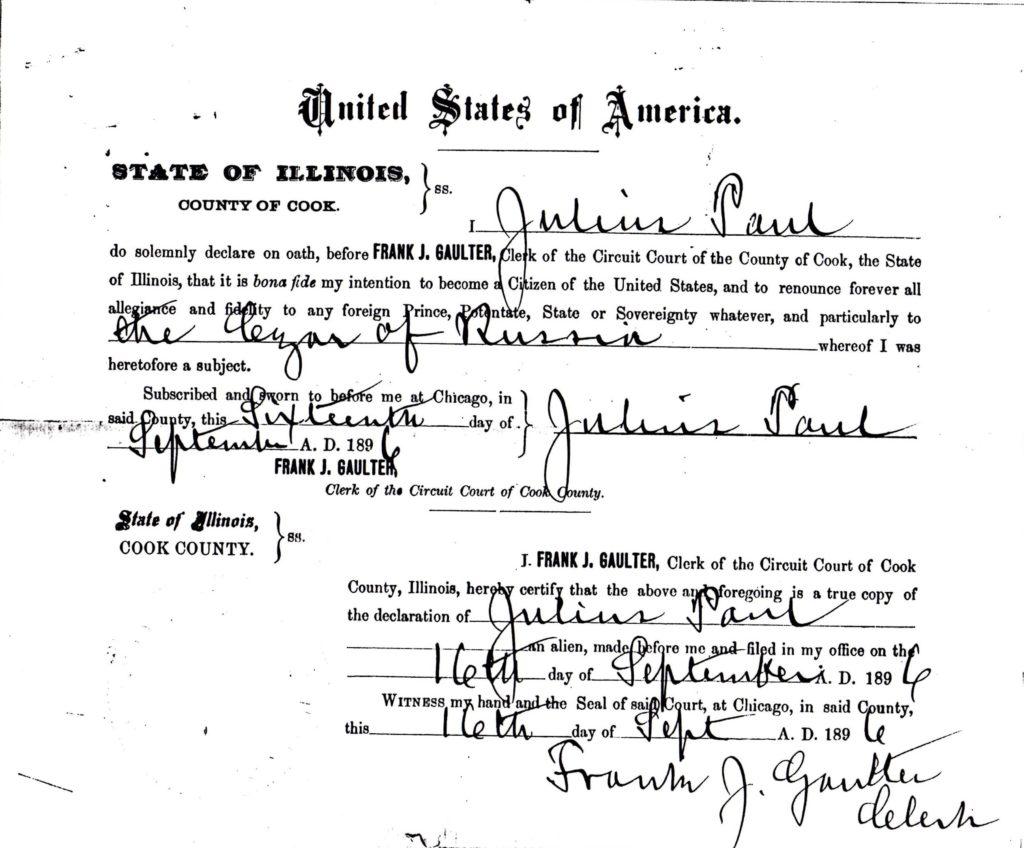 United States of America.
STATE OF ILLINOIS,
COUNTY OF COOK. } ss.
I Julius Paul
do solemnly declare on oath, before FRANK J. GAULTER, Clerk of the Circuit Court of the County of Cook, the State
of Illinois, that it is bona fide my intention to become a Citizen of the United States, and to renounce forever all
allegiance and fidelity to any foreign Prince, Potentate, State or Sovereignty whatever, and particularly to
the Czar of Russia whereof I was
heretofore a subject.
Subscribed and sworn to before me at Chicago, in
said County, this Sixteenth day of } Julius Paul
September A. D. 1896
FRANK J. GAULTER,
Clerk of the Circuit Court of Cook County.
State of Illinois,
COOK COUNTY. } ss.
I. FRANK J. GAULTER, Clerk of the Circuit Court of Cook
County, Illinois, hereby certify that the above and foregoing is a true copy of
the declaration of Julius Paul
an alien, made before me and filed in my office on the
16th day of September A. D. 1896
WITNESS my hand and the Seal of said Court, at Chicago, in said County,
this 16th day of Sept A. D. 1896
Frank J. Gaulter
Clerk